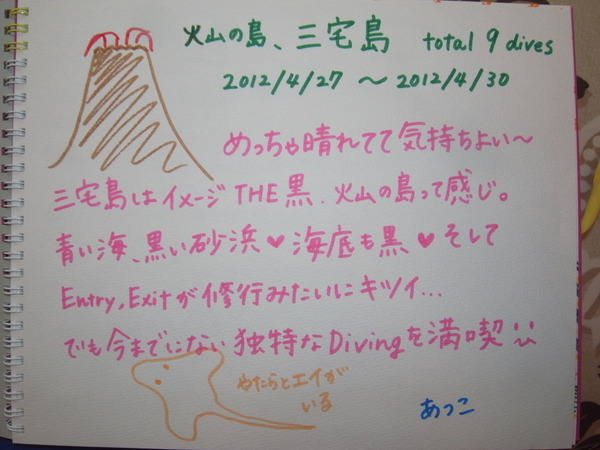 火山の島、三宅島 total 9 dives
2012/4/27 〜 2012/4/30
めっちゃ晴れてて気持ちよい〜
三宅島はイメージTHE黒、火山の島って感じ。
青い海、黒い砂浜♥海底も黒♥そして
Entry,Exitが修行みたいにキツイ...
でも今までにない独特なDivingを満喫
やたらとエイが
いる
あっこ